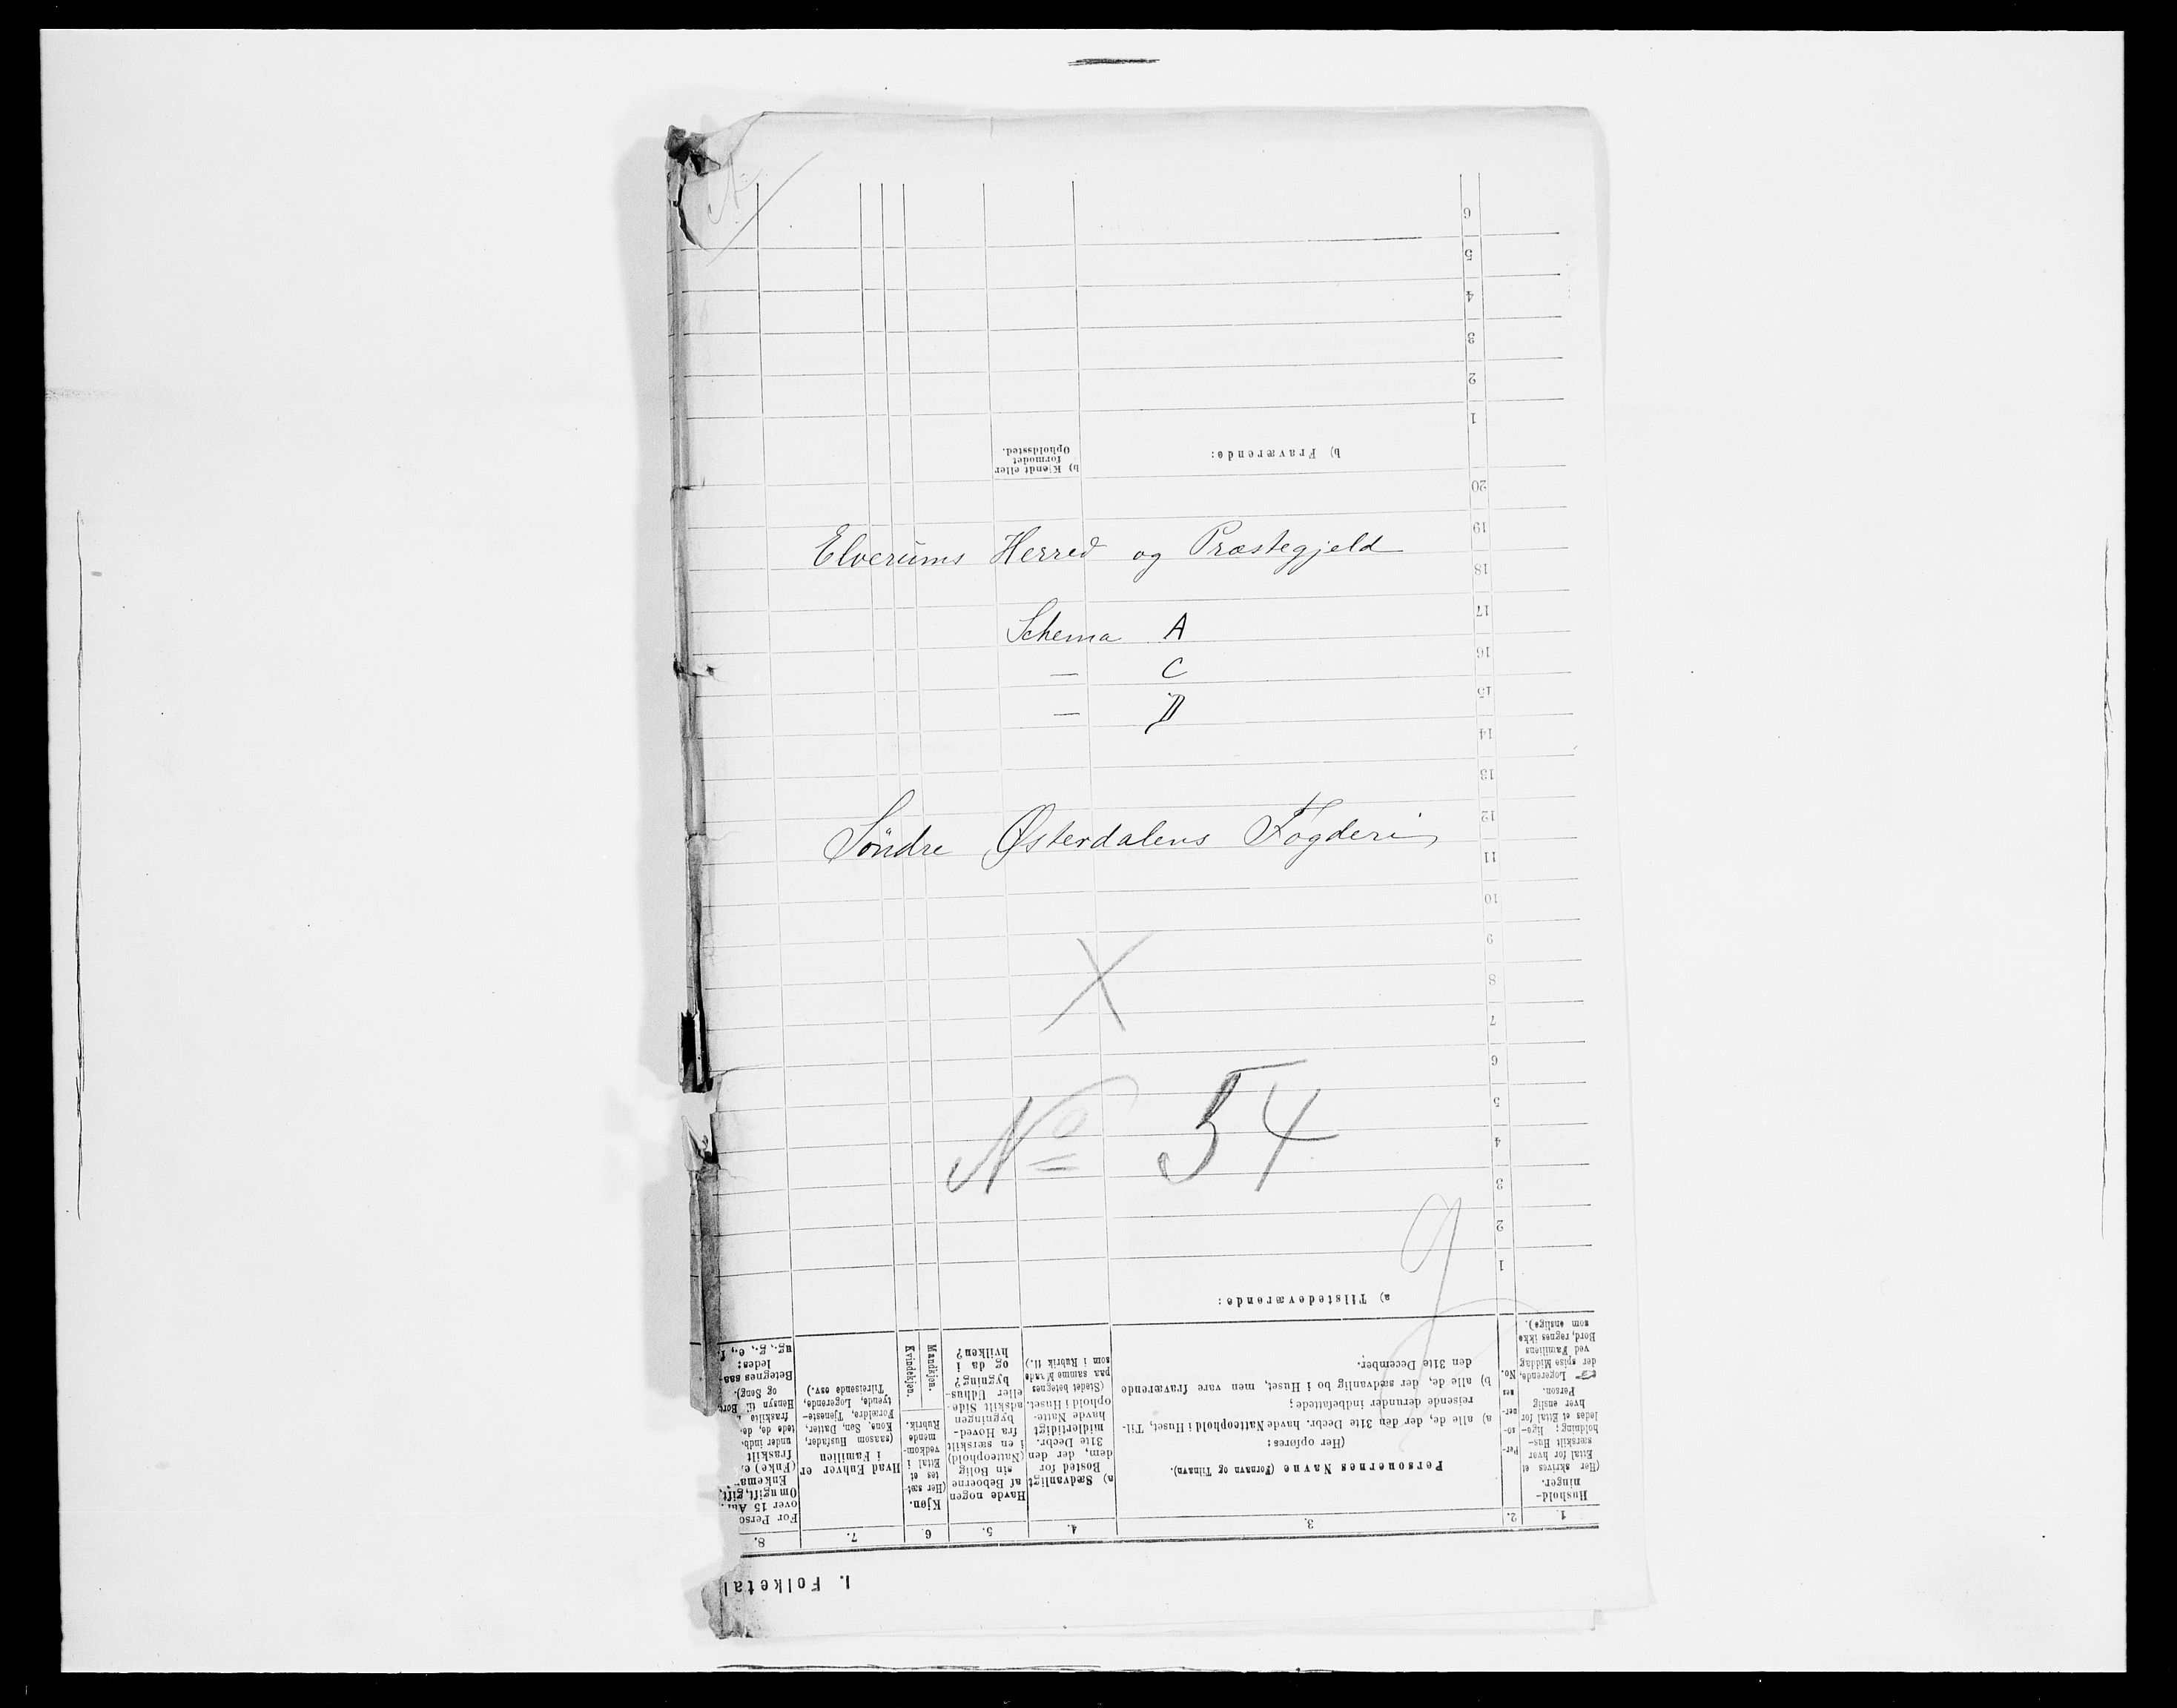 Elverums Herred og Præstegjeld
Schema A
— C
— D
Søndre Østerdalens Fogderi
No 54
9
1. Folketal
1.
2.
3.
4.
5.
6.
7.
8.
Hushold-
ninger.
(Her skrives et
Ettal for hver
særskilt Hus-
holdning; lige-
ledes et Ettal for
hver enslig
Person.
☞ Logerende,
der spise Middag
ved Familiens
Bord, regnes ikke
som enslige).
Per-
so-
ner-
nes
No.
Personernes Navne (Fornavn og Tilnavn).
(Her opføres:
a) alle de, der den 31te Decbr. havde Natteophold i Huset, Til-
reisende derunder indbefattede;
b) alle de, der sædvanlig bo i Huset, men vare fraværende
den 31te December.
a) Sædvanligt
Bosted for
dem, der den
31te Decbr.
midlertidigt
havde Natte-
ophold i Huset.
(Stedet betegnes
paa samme Maade
som i Rubrik 11.)
Havde nogen
af Beboerne
sin Bolig
(Natteophold)
i en særskilt
fra Hoved-
bygningen
adskilt Side-
eller Udhus-
bygning?
og da i
hvilken?
Kjøn.
(Her sæt-
tes et
Ettal i
vedkom-
mende
Rubrik.
Mandkjøn.
Kvindekjøn.
Hvad Enhver er
i Familien
(saasom Husfader,
Kone, Søn, Datter,
Forældre, Tjeneste-
tyende, Logerende,
Tilreisende osv.)
For Perso
over 15 Aa
Om ugift, gift,
Enkema
(Enke) e
fraskilt
under indb.
tede de, de
fraskilte
Hensyn til Bord
og Seng).
Betegnes saa-
ledes:
ug., g., e., f.
a) Tilstedeværende:
1
2
3
4
5
6
7
8
9
10
11
12
13
14
15
16
17
18
19
20
b) Fraværende:
b) Kjendt eller
formodet
Opholdssted.
1
2
3
4
5
6